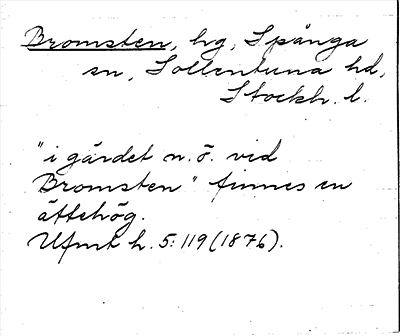 Bromsten, hg, Spånga
sn, Sollentuna hd,
Stockh. l.
"i gärdet n. ö. vid
Bromsten" finnes en
ättehög.
Ufmt h. 5: 119 (1876).